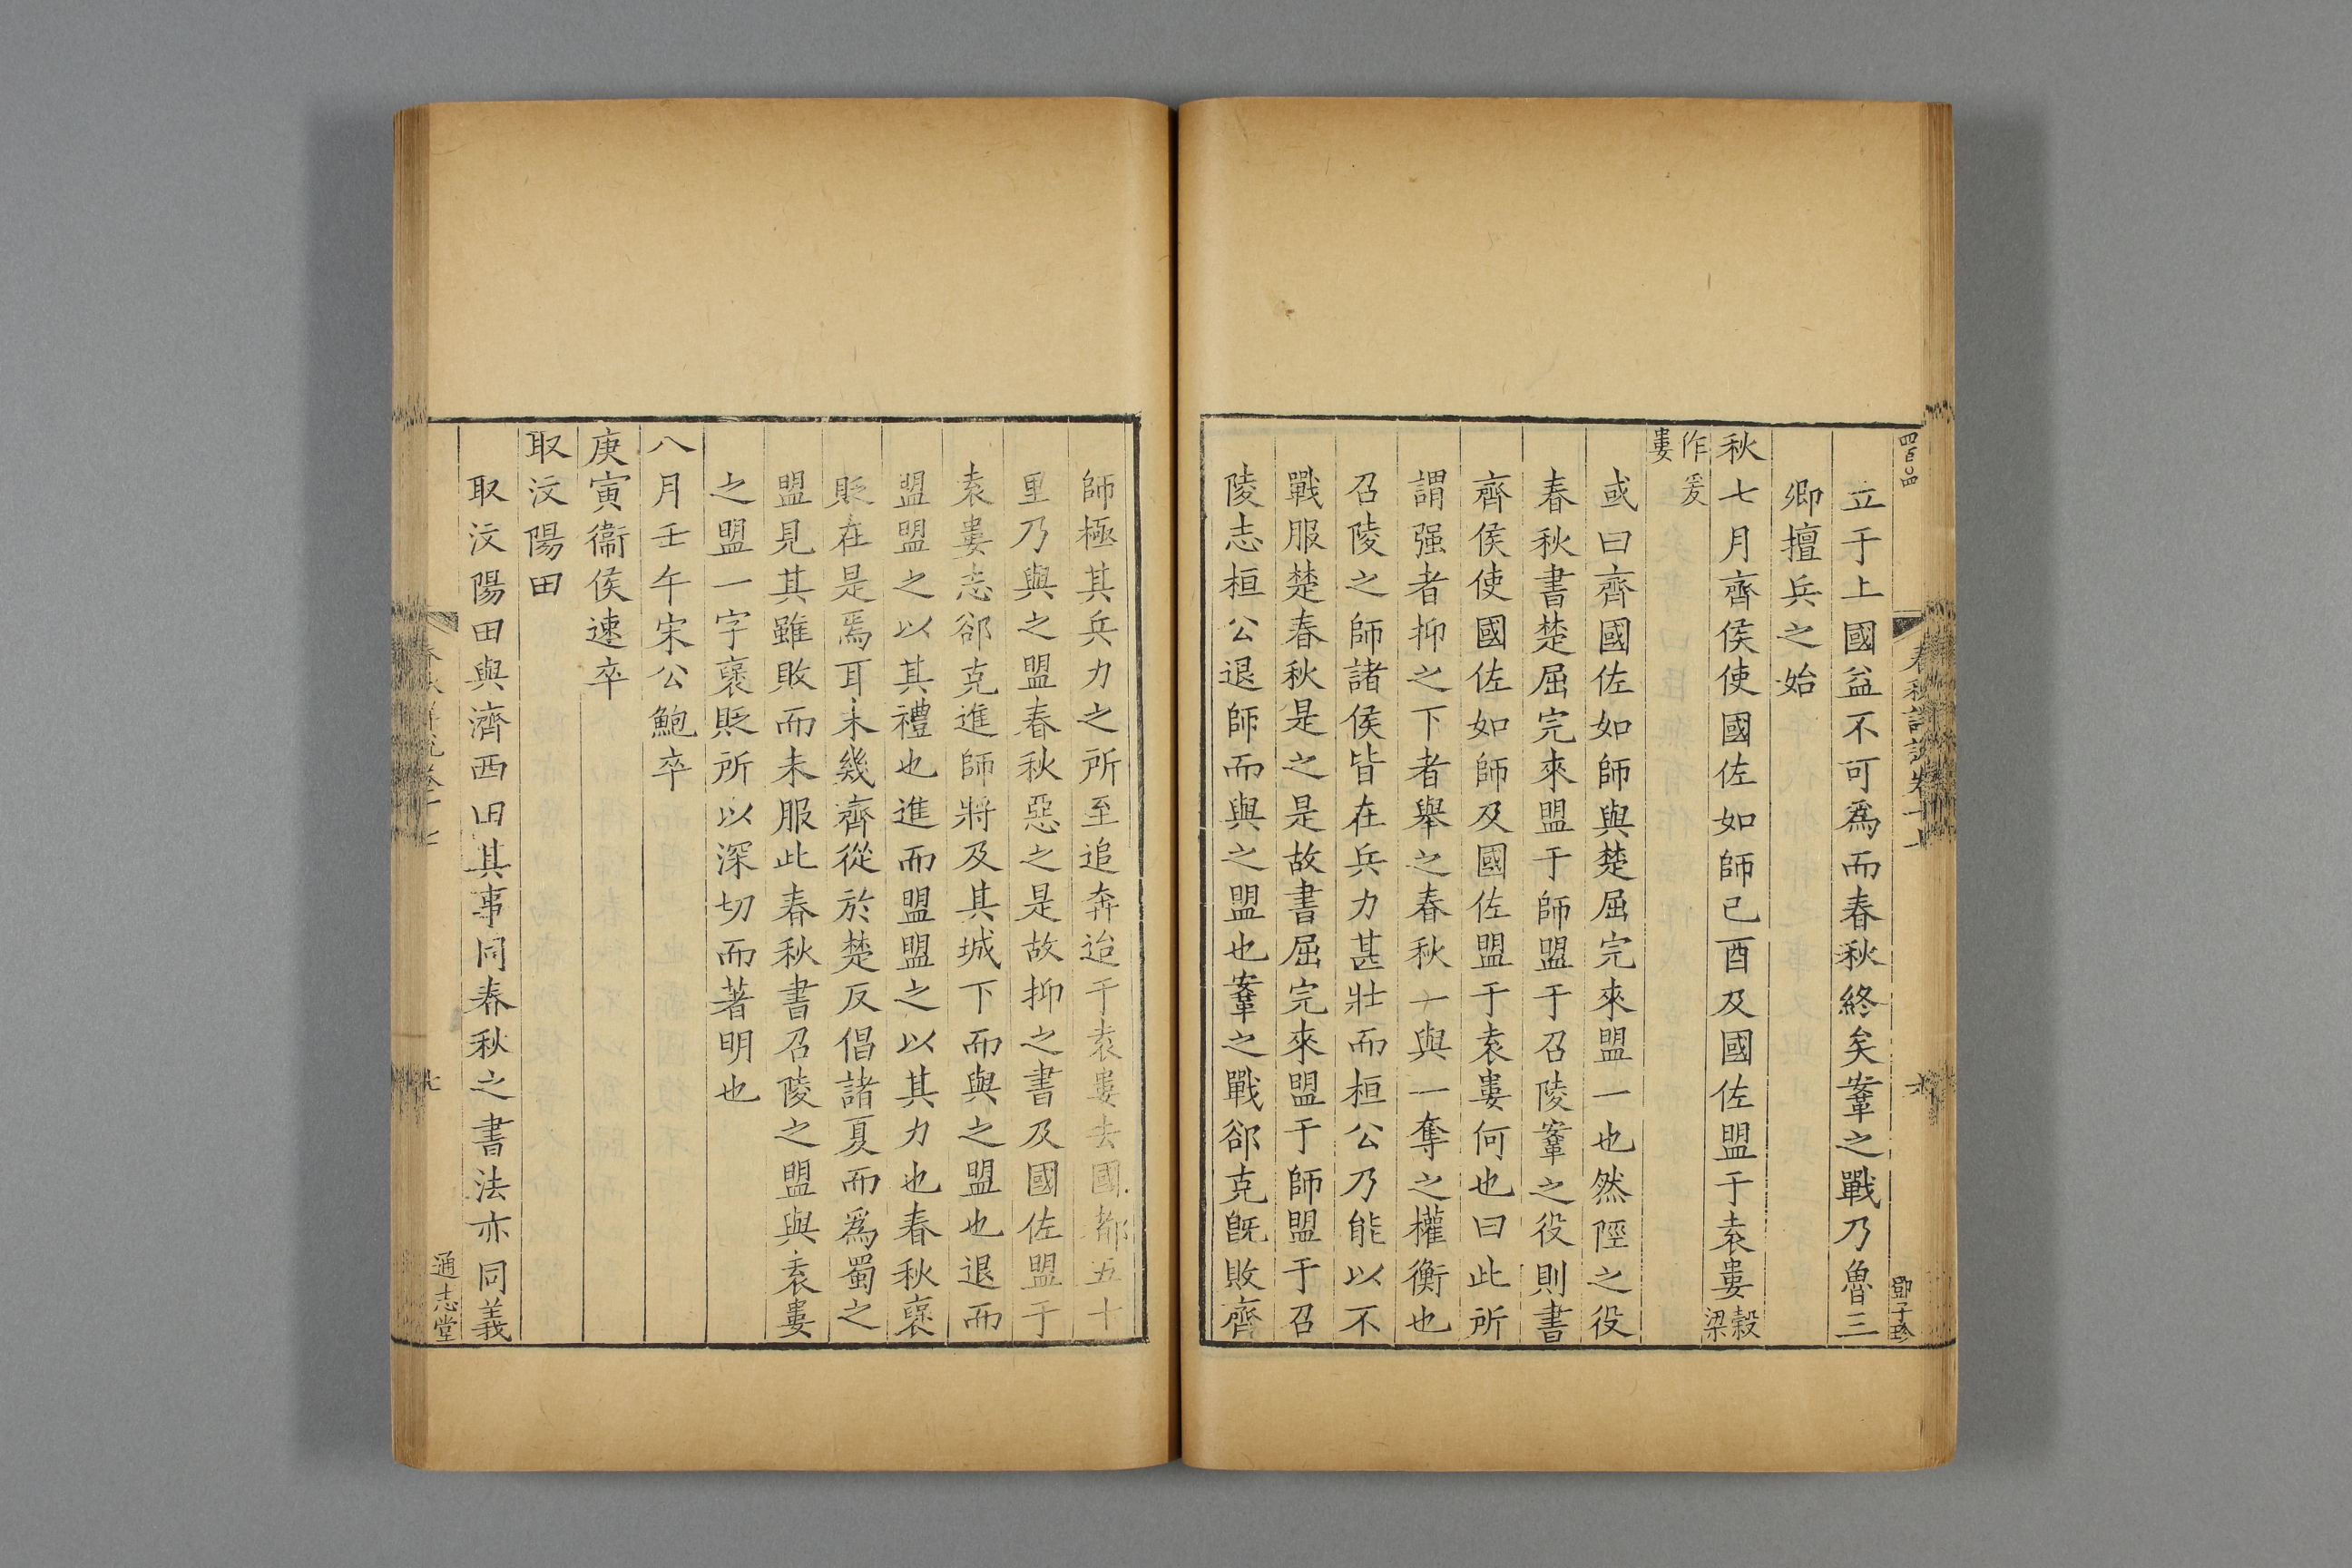 立于上國益不可爲而春秋終矣鞌之戰乃魯三
卿擅兵之始
秋七月齊侯使國佐如師己酉及國佐盟于袁婁穀梁
作爰婁
或曰齊國佐如師與楚屈完來盟一也然陘之役
春秋書楚屈完來盟于師盟于召陵鞌之役則書
齊侯使國佐如師及國佐盟于袁婁何也曰此所
謂强者抑之下者舉之春秋一與一奪之權衡也
召陵之師諸侯皆在兵力甚壯而桓公乃能以不
戰服楚春秋是之是故書屈完來盟于師盟于召
陵志桓公退師而與之盟也鞌之戰郤克旣敗齊
鄧子珍
師極其兵力之所至追奔迨于袁婁去國都五十
里乃與之盟春秋惡之是故抑之書及國佐盟于
袁婁志郤克進師將及其城下而與之盟也退而
盟盟之以其禮也進而盟盟之以其力也春秋褒
貶在是焉耳未幾齊從於楚反倡諸夏而爲蜀之
盟見其雖敗而未服此春秋書召陵之盟與袁婁
之盟一字褒貶所以深切而著明也
八月壬午宋公鮑卒
庚寅衞侯速卒
取汶陽田
取汶陽田與濟西田其事同春秋之書法亦同義
通志堂